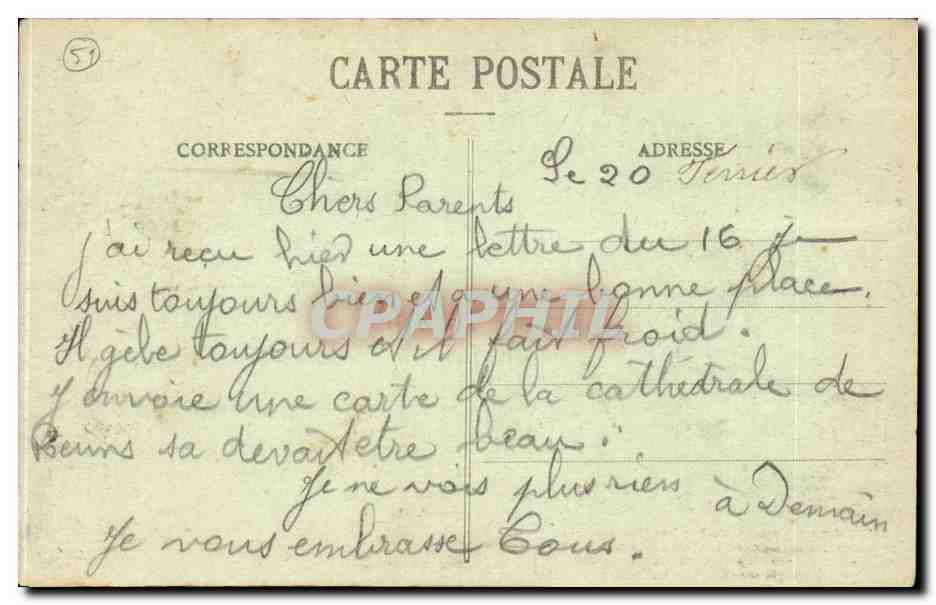 51
CARTE POSTALE
CORRESPONDANCE
ADRESSE
Le 20
Chers Parents
j'ai reçu hier une lettre du 16 je
suis toujours bien et a une bonne place.
Il gèle toujours et il fait froid.
J envoie une carte de la cathédrale de
Reims sa devait etre beau.
Je ne vois plus rien
à Demain
Je vous embrasse Tous.
CPAPHIL